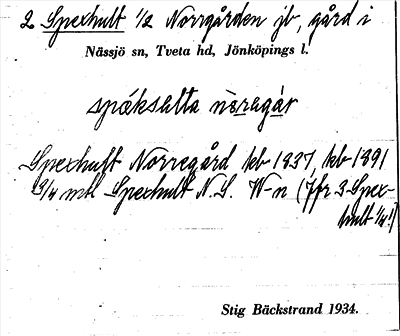 2 Spexhult 1/2 Norrgården jb, gård i
Nässjö sn, Tveta hd, Jönköpings l.
spáksalta nöragár
Spexhult Norregård kb 1837, kb 1891
3/4 mtl Spexhult N. S. W-n (Jfr 3 Spex-
hult 1/4!)
Stig Bäckstrand 1934.